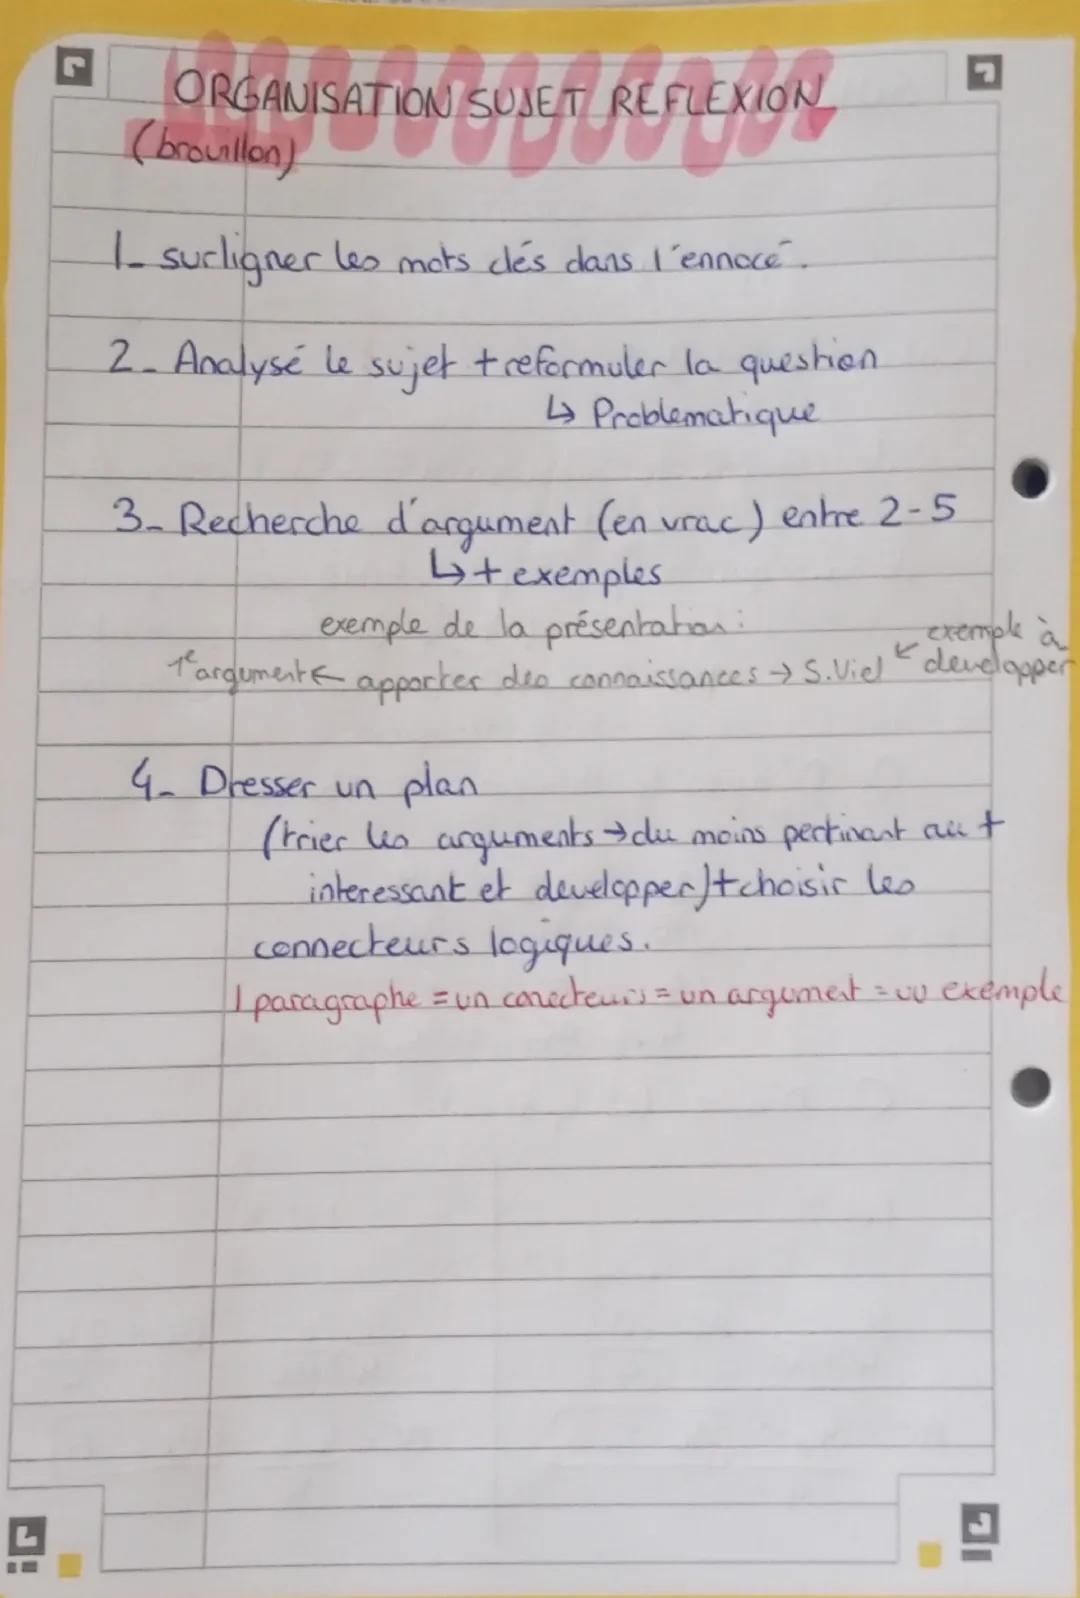 ORGANISATION SUJET REFLEXION
(brouillon)
1_ surligner les mots clés dans l'ennocé.
2_ Analysé le sujet + reformuler la question
↳ Problematique
3_ Recherche d'argument (en vrac) entre 2-5
↳ + exemples
exemple de la présentation :
1e argument ← apporter des connaissances → S.Viel ↙ exemple à developper
4_ Dresser un plan
(trier les arguments → du moins pertinant au +
interessant et developper) + choisir les
connecteurs logiques.
1 paragraphe = un conecteurs = un argument = un exemple